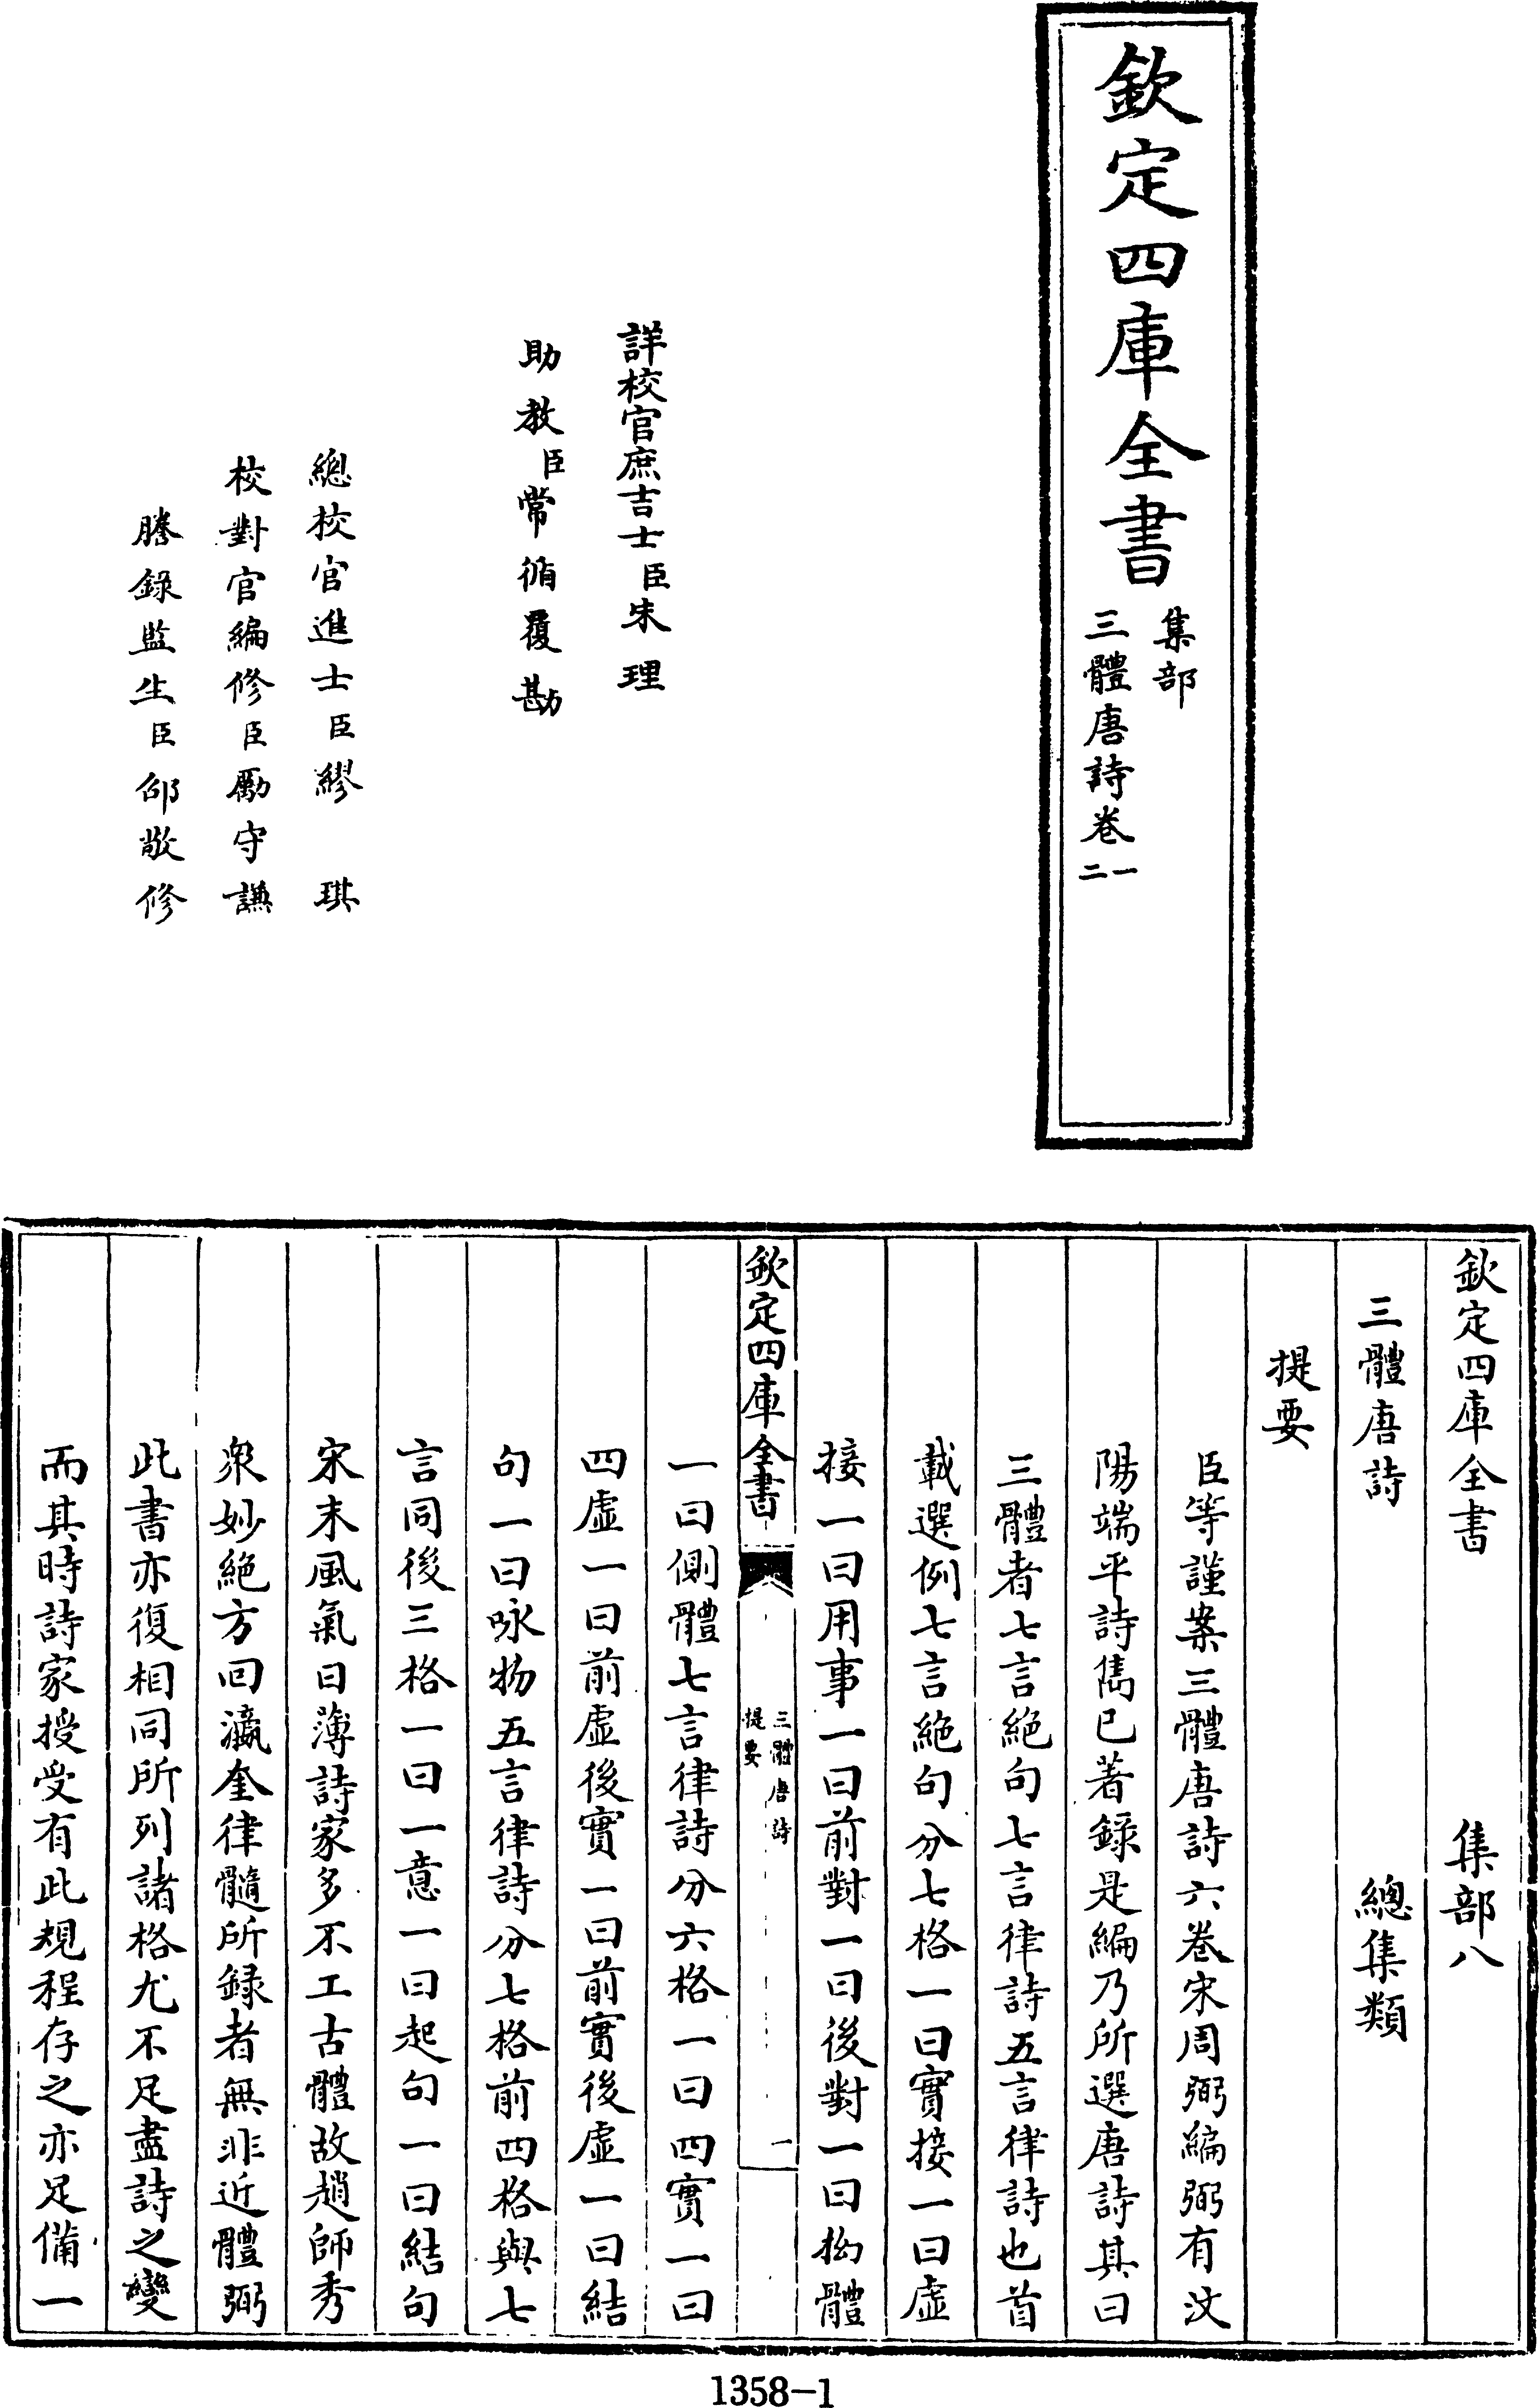 欽定四庫全書
集部
三體唐詩卷一二
詳校官庶吉士臣朱理
助教臣常循覆勘
總校官進士臣繆琪
校對官編修臣勵守謙
謄錄監生臣邰敬修
欽定四庫全書 集部八
三體唐詩 總集類
提要
臣等謹案三體唐詩六卷宋周弼編弼有汶
陽端平詩雋已著録是編乃所選唐詩其曰
三體者七言絶句七言律詩五言律詩也首
載選例七言絶句分七格一曰實接一曰虚
接一曰用事一曰前對一曰後對一曰拗體
欽定四庫全書
三體唐詩
提要
一
一曰側體七言律詩分六格一曰四實一曰
四虚一曰前虚後實一曰前實後虚一曰結
句一曰咏物五言律詩分七格前四格與七
言同後三格一曰一意一曰起句一曰結句
宋末風氣日薄詩家多不工古體故趙師秀
衆妙絶方回瀛奎律髓所録者無非近體弼
此書亦復相同所列諸格尤不足盡詩之變
而其時詩家授受有此規程存之亦足備一
1358-1